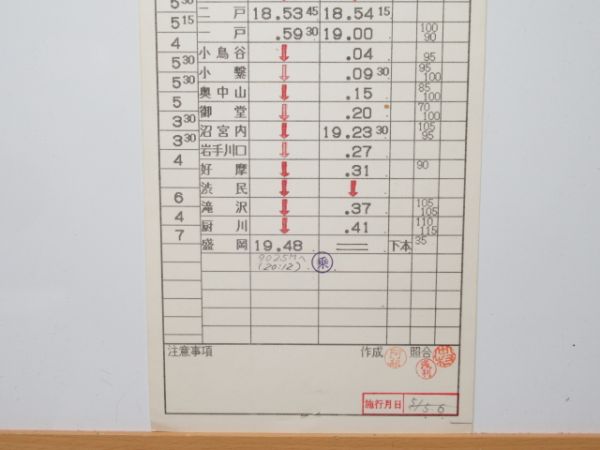 5 30
二戸 18.53 45 18.54 15
5 15
二戸 .59 30 19.00 100 90
4
小鳥谷 ↓ .04 95
5 30
小繋 ↓ .09 30 95 100
5 30
奥中山 ↓ .15 85 100
5
御堂 ↓ .20 70 100
3 30
沼宮内 ↓ 19.23 30 105 95
3 30
岩手川口 ↓ .27
4
好摩 ↓ .31 90
渋民 ↓ ↓
6
滝沢 ↓ .37 105 105
4
厨川 ↓ .41 110 115
7
盛岡 19.48 ═ 下本 35
9025Mへ
(20:12) 乗
注意事項 作成 照合
施行月日 5/5.6